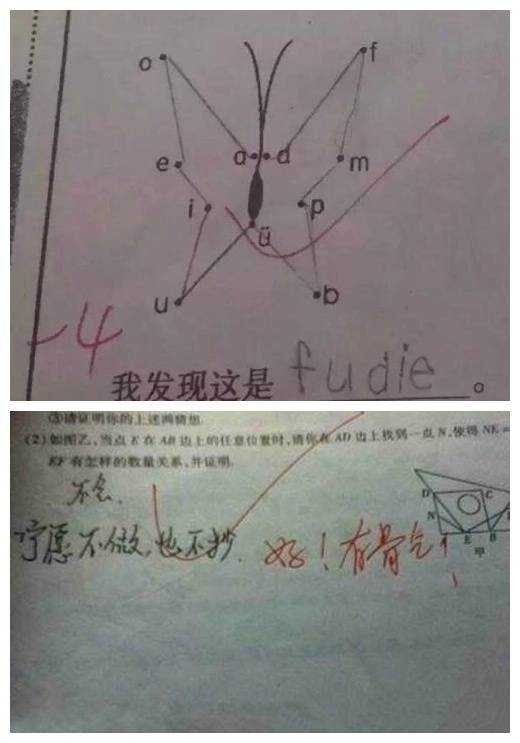 o f
a d
e m
i p
ü
u b
-4
我发现这是 fudie 。
③请证明你的上述两猜想.
(2)如图乙,当点 E 在 AB 边上的任意位置时,请你在 AD 边上找到一点 N,使得 NE=
EF 有怎样的数量关系,并证明.
不会.
宁愿不做,也不抄. 好!有骨气!
D C
N
E B
甲